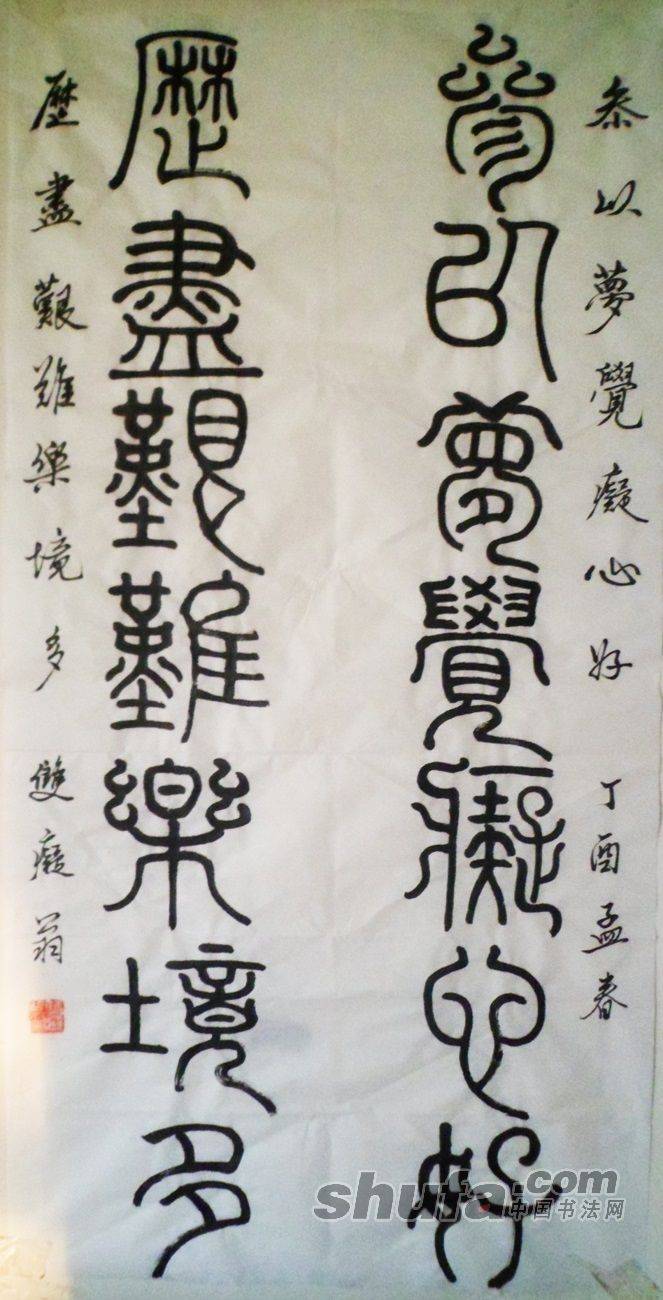 叅以夢覺癡心好 丁酉孟春
參㠯夢覺癡心好
歷盡艱難樂境多
歷盡艱難樂境多 雙癡翁
shufa.com
中国书法网